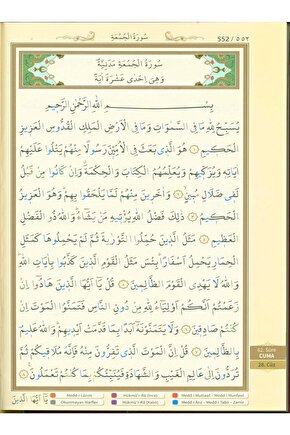 سُورَةُ الْجُمُعَةِ
552 / ٥٥٢
سُورَةُ الْجُمُعَةِ مَدَنِيَّةٌ
وَهِىَ اِحْدٰى عَشْرَةَ اٰيَةً
بِسْمِ اللّٰهِ الرَّحْمٰنِ الرَّحِيمِ
يُسَبِّحُ لِلّٰهِ مَا فِى السَّمٰوَاتِ وَمَا فِى الْاَرْضِ الْمَلِكِ الْقُدُّوسِ الْعَزِيزِ
الْحَكِيمِ ﴿١﴾ هُوَ الَّذِى بَعَثَ فِى الْاُمِّيّٖنَ رَسُولًا مِنْهُمْ يَتْلُوا عَلَيْهِمْ
اٰيَاتِهٖ وَيُزَكّٖيهِمْ وَيُعَلِّمُهُمُ الْكِتَابَ وَالْحِكْمَةَ وَاِنْ كَانُوا مِنْ قَبْلُ
لَفٖى ضَلَالٍ مُبٖينٍ ﴿٢﴾ وَاٰخَرٖينَ مِنْهُمْ لَمَّا يَلْحَقُوا بِهِمْ وَهُوَ الْعَزٖيزُ
الْحَكٖيمُ ﴿٣﴾ ذٰلِكَ فَضْلُ اللّٰهِ يُؤْتٖيهِ مَنْ يَشَٓاءُ وَاللّٰهُ ذُو الْفَضْلِ
الْعَظٖيمِ ﴿٤﴾ مَثَلُ الَّذٖينَ حُمِّلُوا التَّوْرٰيةَ ثُمَّ لَمْ يَحْمِلُوهَا كَمَثَلِ
الْحِمَارِ يَحْمِلُ اَسْفَارًا بِئْسَ مَثَلُ الْقَوْمِ الَّذٖينَ كَذَّبُوا بِاٰيَاتِ اللّٰهِ
وَاللّٰهُ لَا يَهْدِى الْقَوْمَ الظَّالِمٖينَ ﴿٥﴾ قُلْ يَٓا اَيُّهَا الَّذٖينَ هَادُٓوا اِنْ
زَعَمْتُمْ اَنَّكُمْ اَوْلِيَٓاءُ لِلّٰهِ مِنْ دُونِ النَّاسِ فَتَمَنَّوُا الْمَوْتَ اِنْ
كُنْتُمْ صَادِقٖينَ ﴿٦﴾ وَلَا يَتَمَنَّوْنَهُٓ اَبَدًا بِمَا قَدَّمَتْ اَيْدٖيهِمْ وَاللّٰهُ عَلٖيمٌ
بِالظَّالِمٖينَ ﴿٧﴾ قُلْ اِنَّ الْمَوْتَ الَّذٖى تَفِرُّونَ مِنْهُ فَاِنَّهُ مُلَاقٖيكُمْ ثُمَّ
تُرَدُّونَ اِلٰى عَالِمِ الْغَيْبِ وَالشَّهَادَةِ فَيُنَبِّئُكُمْ بِمَا كُنْتُمْ تَعْمَلُونَ ﴿٨﴾
يَٓا اَيُّهَا الَّذٖينَ
62. Sûre
CUMA
28. Cüz
Medd-i Lâzım
Hükmü'r-Râ (İnce)
Medd-i Muttasıl - Medd-i Munfasıl
Okunmayan Harfler
Hükmü'r-Râ (Kalın)
Medd-i Arız - Medd-i Tabii - Zamir